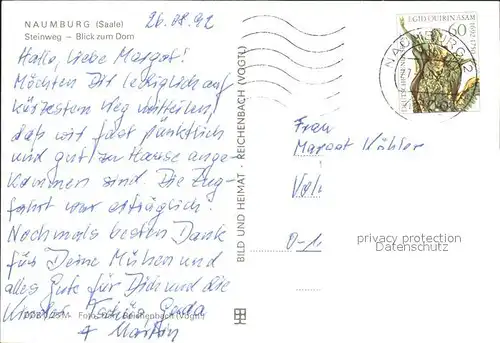 NAUMBURG (Saale)
Steinweg – Blick zum Dom
26.08.92
Hallo, liebe Margot!
Möchten Dir lediglich auf
kürzestem Weg mitteilen,
daß wir fast pünktlich
und gut zu Hause ange-
kommen sind. Die Zug-
fahrt war erträglich!
Nochmals besten Dank
für Deine Mühen und
alles Gute für Dich und die
Kinder. Tschüs
+ Martin
Reichenbach (Vogtl)
BILD UND HEIMAT · REICHENBACH (VOGTL)
EGID QUIRIN ASAM
60
1692-1750
DEUTSCHE BUNDESPOST
NAUMBURG 2
Frau
Margot Köhler
privacy protection
Datenschutz